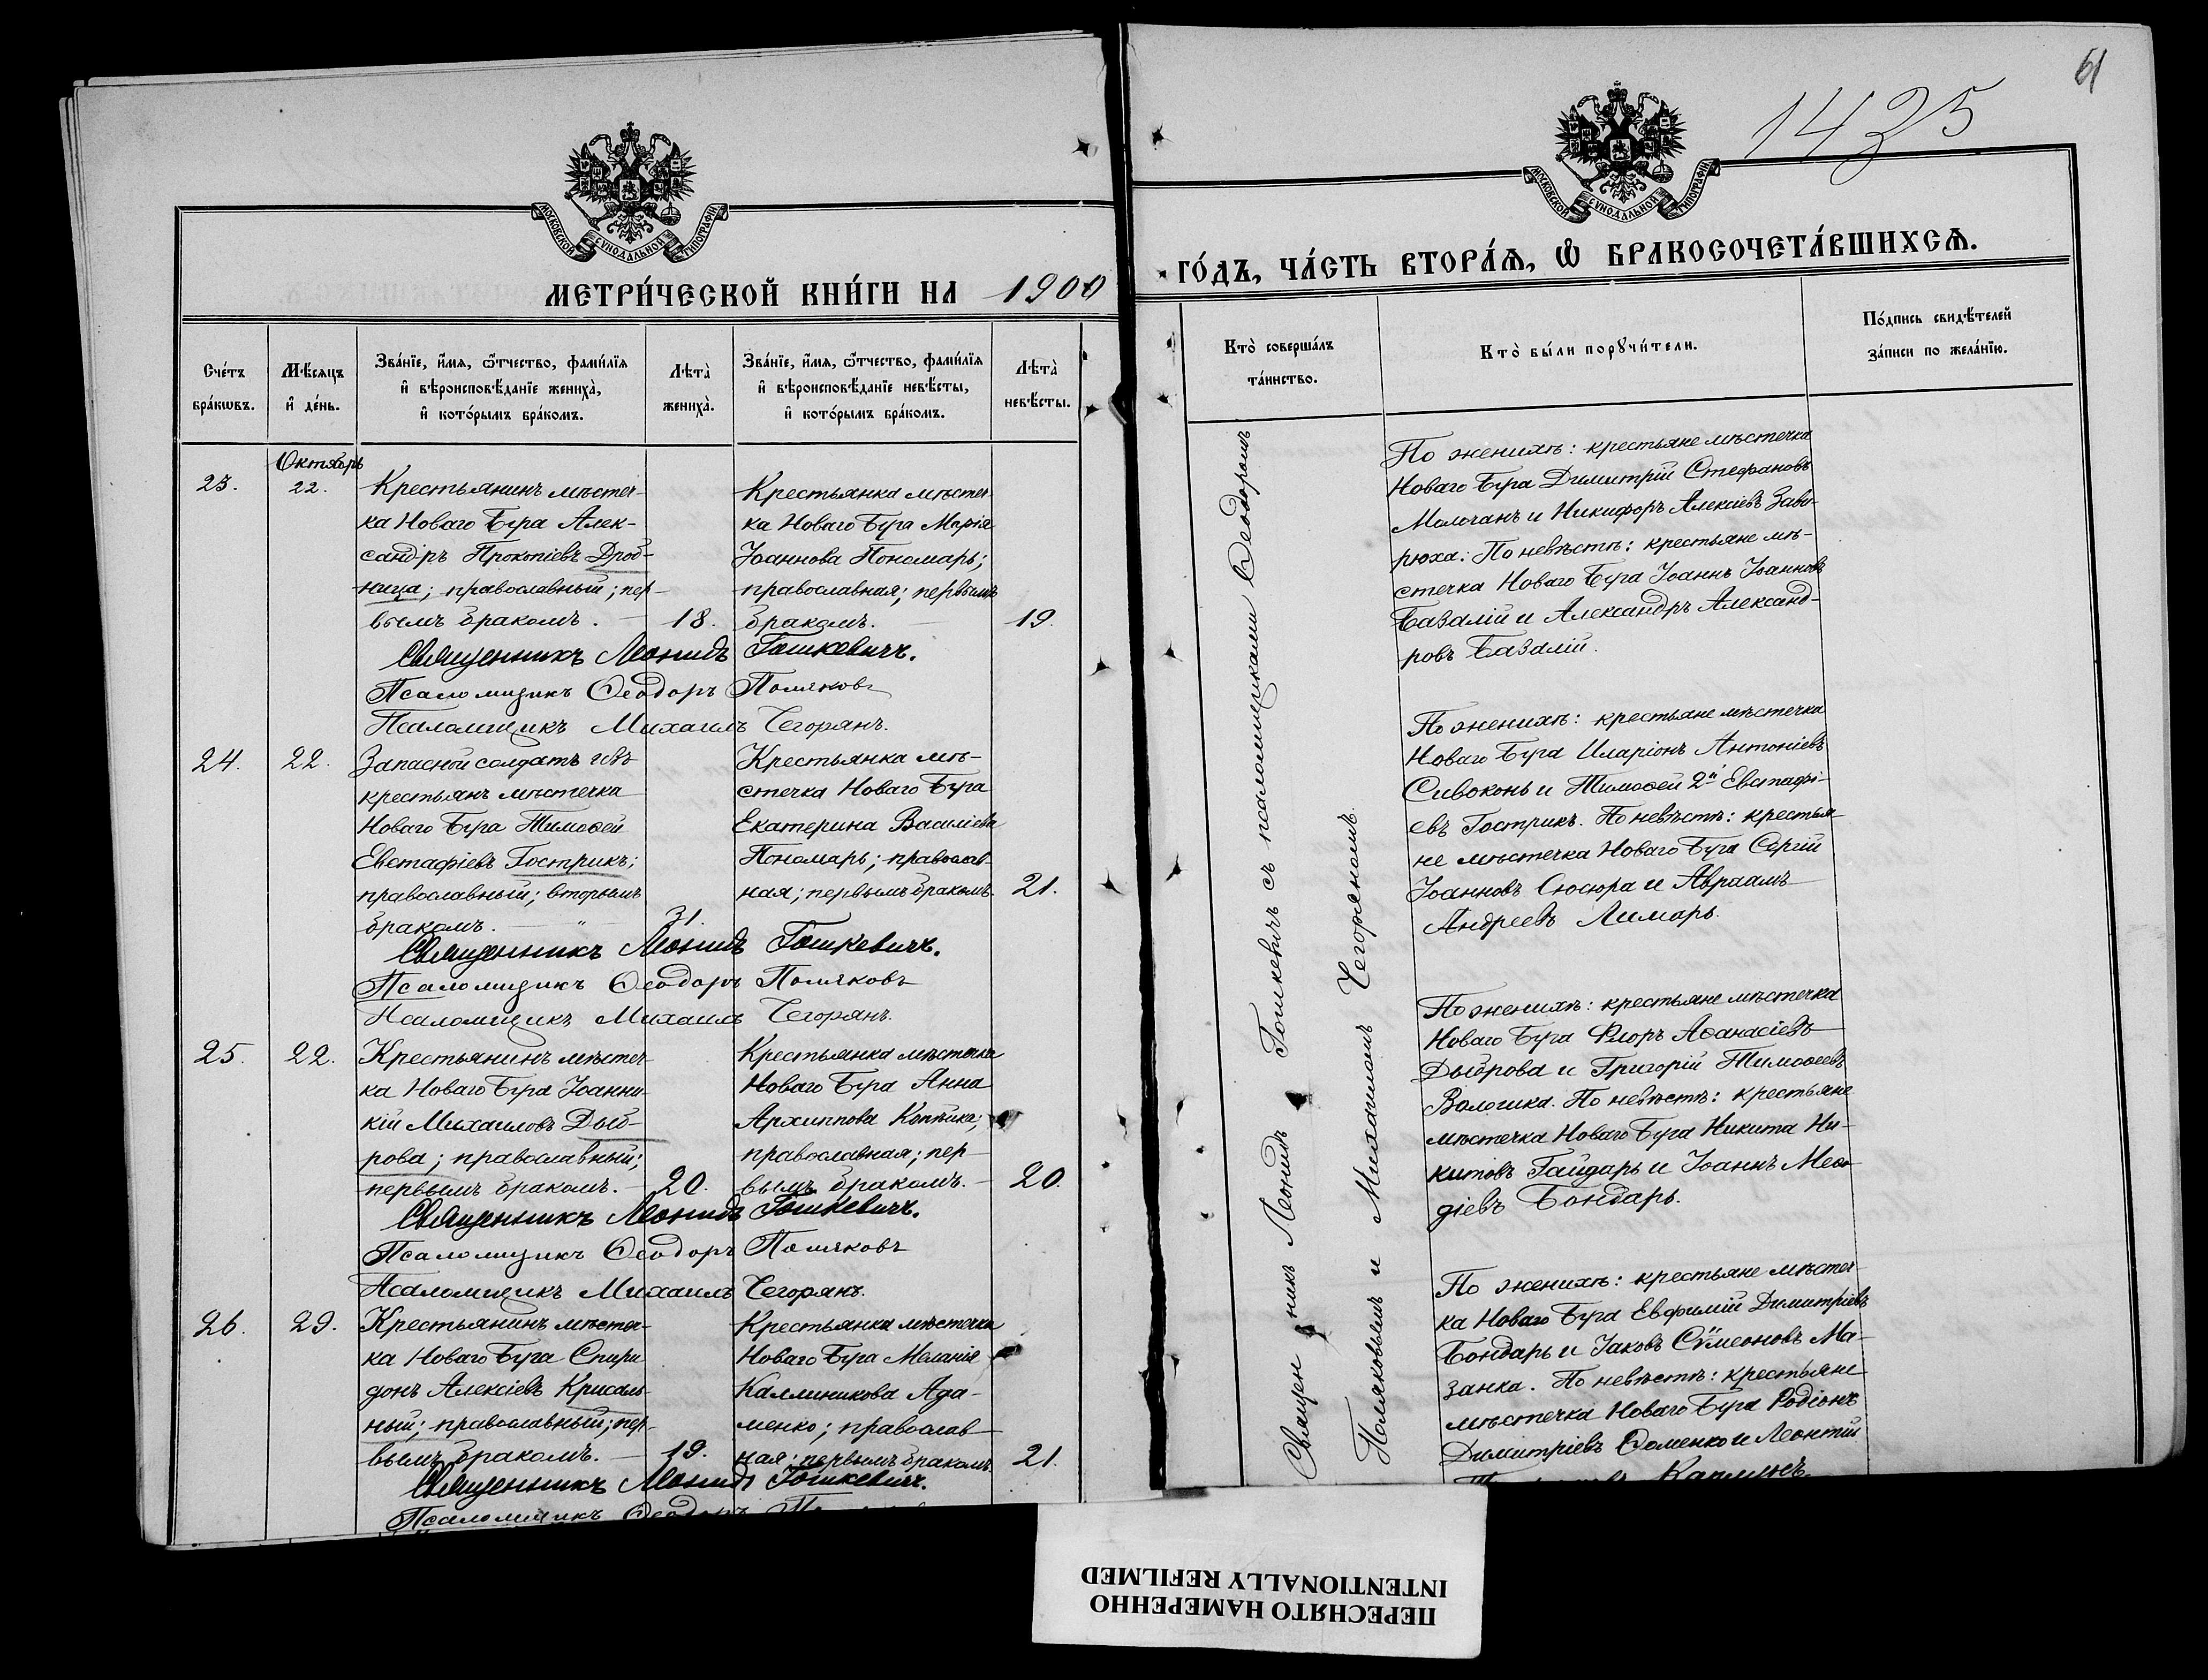 МОСКОВСКОЙ СУНОДАЛЬНОЙ ТИПОГРАФІИ
МЕТРИ́ЧЕСКОЙ КНИ́ГИ НА 1900
Сче́тъ бра́кѡвъ.
Мѣ́сяцъ и҆ де́нь.
Зва́нїе, и҆́мя, ѻ҆́тчество, фами́лїя и҆ вѣроисповѣ́данїе жениха̀, и҆ кото́рымъ бра́комъ.
Лѣта̀ жениха̀.
Зва́нїе, и҆́мя, ѻ҆́тчество, фами́лїя и҆ вѣроисповѣ́данїе невѣ́сты, и҆ кото́рымъ бра́комъ.
Лѣта̀ невѣ́сты.
Октябрь
23.
22.
Крестьянинъ мѣстеч-
ка Новаго Буга Алек-
сандръ Прокопіевъ Дроб-
ница; православный; пер-
вымъ бракомъ.
18.
Крестьянка мѣстеч-
ка Новаго Буга Марія
Іоаннова Пономарь;
православная; первымъ
бракомъ.
19.
Священникъ Леонидъ Гошкевичъ.
Псаломщикъ Ѳеодоръ Поляковъ
Псаломщикъ Михаилъ Чегорянъ.
24.
22.
Запасной солдатъ изъ
крестьянъ мѣстечка
Новаго Буга Тимоѳей
Евстафіевъ Гострикъ;
православный; вторымъ
бракомъ.
31.
Крестьянка мѣ-
стечка Новаго Буга
Екатерина Василіева
Пономарь; православ-
ная; первымъ бракомъ.
21.
Священникъ Леонидъ Гошкевичъ.
Псаломщикъ Ѳеодоръ Поляковъ
Псаломщикъ Михаилъ Чегорянъ.
25.
22.
Крестьянинъ мѣстеч-
ка Новаго Буга Іоанни-
кій Михаиловъ Дыб-
рова; православный;
первымъ бракомъ.
20.
Крестьянка мѣстечка
Новаго Буга Анна
Архиппова Коптика;
православная; пер-
вымъ бракомъ.
20.
Священникъ Леонидъ Гошкевичъ.
Псаломщикъ Ѳеодоръ Поляковъ
Псаломщикъ Михаилъ Чегорянъ.
26.
29.
Крестьянинъ мѣстеч-
ка Новаго Буга Спири-
донъ Алексіевъ Крисаль-
ный; православный; пер-
вымъ бракомъ.
19.
Крестьянка мѣстечка
Новаго Буга Меланія
Каллиникова Ада-
менко; православ-
ная; первымъ бракомъ.
21.
Священникъ Леонидъ Гошкевичъ.
Псаломщикъ Ѳеодоръ
61
1425
МОСКОВСКОЙ СУНОДАЛЬНОЙ ТИПОГРАФІИ
ГО́ДЪ, ЧА́СТЬ ВТОРА́Я, Ѡ҆ БРАКОСОЧЕТА́ВШИХСЯ.
Кто̀ соверша́лъ та́инство.
Кто̀ бы́ли порꙋчи́тели.
По́дпись свидѣ́телей за́писи по жела́нїю.
Священникъ Леонидъ Гошкевичъ съ псаломщиками Ѳеодоромъ
Поляковымъ и Михаиломъ Чегоряномъ.
По женихѣ: крестьяне мѣстечка
Новаго Буга Димитрій Стефановъ
Молочанъ и Никифоръ Алексіевъ Заве-
рюха. По невѣстѣ: крестьяне мѣ-
стечка Новаго Буга Іоаннъ Іоанновъ
Базалій и Александръ Александ-
ровъ Базалій.
По женихѣ: крестьяне мѣстечка
Новаго Буга Иларіонъ Антоніевъ
Сивоконь и Тимоѳей 2й Евстафі-
евъ Гострикъ. По невѣстѣ: крестья-
не мѣстечка Новаго Буга Сергій
Іоанновъ Сюсюра и Авраамъ
Андреевъ Лимарь.
По женихѣ: крестьяне мѣстечка
Новаго Буга Флоръ Аѳанасіевъ
Дыброва и Григорій Тимоѳеевъ
Волошка. По невѣстѣ: крестьяне
мѣстечка Новаго Буга Никита Ни-
китовъ Гайдарь и Іоаннъ Меѳо-
діевъ Бондарь.
По женихѣ: крестьяне мѣстеч-
ка Новаго Буга Евфимій Димитріевъ
Бондарь и Іаковъ Сѵмеоновъ Ма-
занка. По невѣстѣ: крестьяне
мѣстечка Новаго Буга Родіонъ
Димитріевъ Ѳоменко и Леонтій
ПЕРЕСНЯТО НАМЕРЕННО
INTENTIONALLY REFILMED